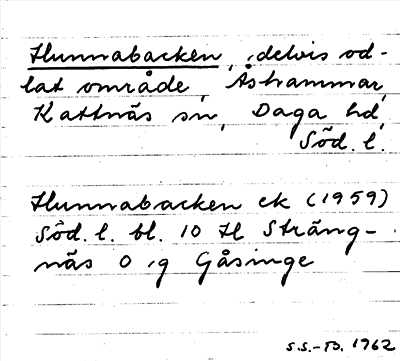 Hunnabacken, delvis od-
lat område, Åshammar,
Kattnäs sn, Daga hd,
Söd. l.
Hunnabacken ek (1959)
Söd. l. bl. 10 H Sträng-
näs O ; g Gåsinge
S.S.-B. 1962